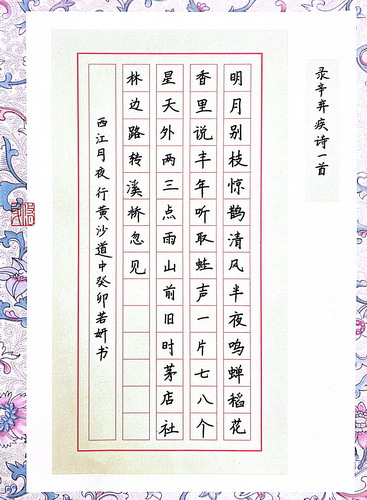 录辛弃疾诗一首
明月别枝惊鹊清风半夜鸣蝉稻花
香里说丰年听取蛙声一片七八个
星天外两三点雨山前旧时茅店社
林边路转溪桥忽见
西江月夜行黄沙道中癸卯若妍书